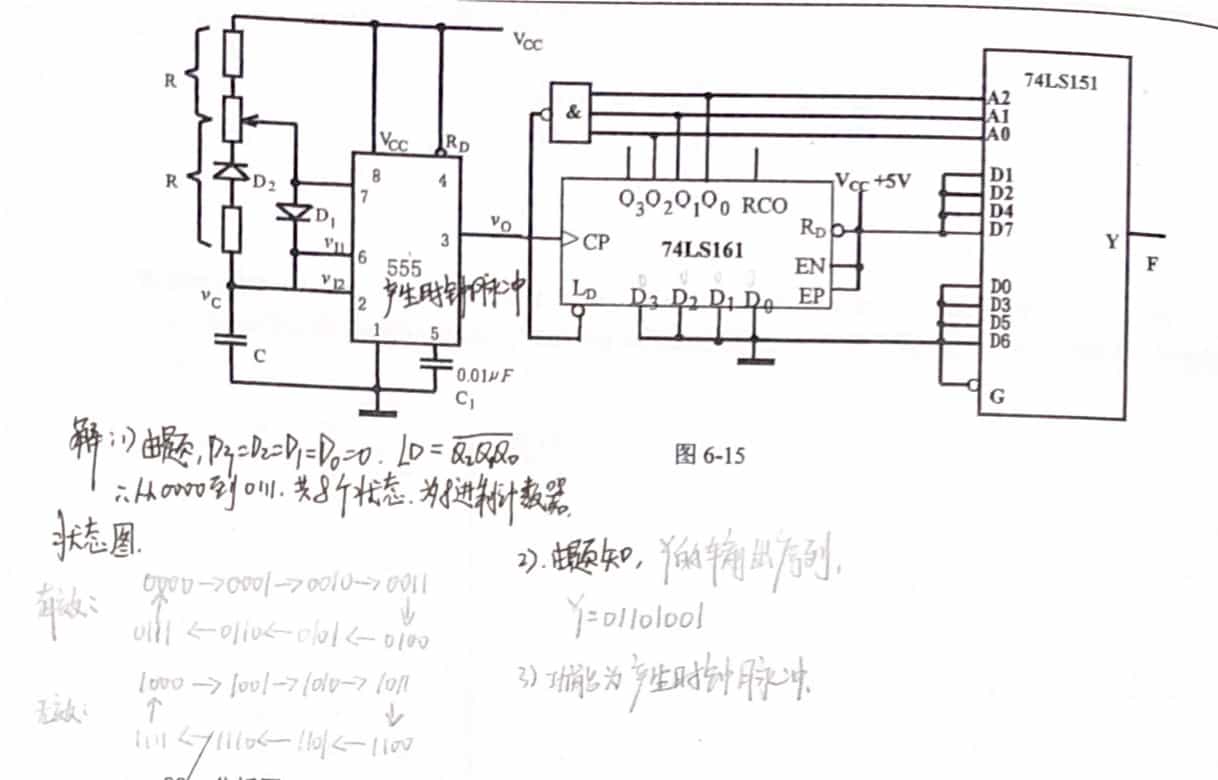 V_CC
R
R
D₂
D₁
V_CC
R_D
8
4
7
6
3
2
1
5
v_I1
v_I2
v_C
C
555
产生时钟脉冲
0.01μF
C₁
v_O
&
Q₃Q₂Q₁Q₀ RCO
CP
74LS161
R_D
EN
EP
L_D
0 0 0 0
D₃ D₂ D₁ D₀
V_CC +5V
74LS151
A2
A1
A0
D1
D2
D4
D7
D0
D3
D5
D6
G
Y
F
图 6-15
解:1)由题,D₃=D₂=D₁=D₀=0. LD=\overline{Q₂Q₁Q₀}
∴从0000到0111.共8个状态.为8进制计数器.
状态图.
有效: 0000→0001→0010→0011
↑ ↓
0111←0110←0101←0100
无效: 1000→1001→1010→1011
↑ ↓
1111←1110←1101←1100
2).由题知,Y的输出序列,
Y=01101001
3)功能为产生时钟脉冲.